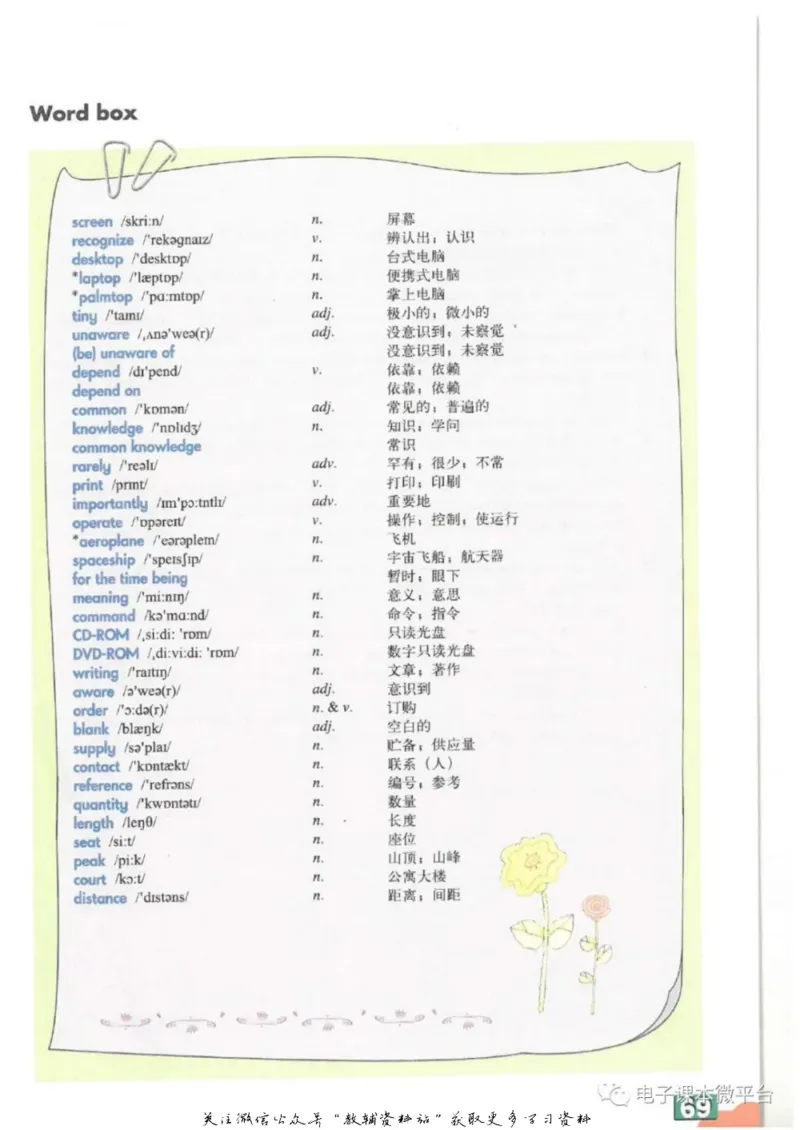 Word box
screen /skri:n/ n. 屏幕
recognize /'rekəgnaɪz/ v. 辨认出；认识
desktop /'desktɒp/ n. 台式电脑
*laptop /'læptɒp/ n. 便携式电脑
*palmtop /'pɑ:mtɒp/ n. 掌上电脑
tiny /'taɪnɪ/ adj. 极小的；微小的
unaware /ˌʌnə'weə(r)/ adj. 没意识到；未察觉
(be) unaware of 没意识到；未察觉
depend /dɪ'pend/ v. 依靠；依赖
depend on 依靠；依赖
common /'kɒmən/ adj. 常见的；普遍的
knowledge /'nɒlɪdʒ/ n. 知识；学问
common knowledge 常识
rarely /'reəlɪ/ adv. 罕有；很少；不常
print /prɪnt/ v. 打印；印刷
importantly /ɪm'pɔ:tntlɪ/ adv. 重要地
operate /'ɒpəreɪt/ v. 操作；控制；使运行
*aeroplane /'eərəpleɪn/ n. 飞机
spaceship /'speɪsʃɪp/ n. 宇宙飞船；航天器
for the time being 暂时；眼下
meaning /'mi:nɪŋ/ n. 意义；意思
command /kə'mɑ:nd/ n. 命令；指令
CD-ROM /ˌsi:di: 'rɒm/ n. 只读光盘
DVD-ROM /ˌdi:vi:di: 'rɒm/ n. 数字只读光盘
writing /'raɪtɪŋ/ n. 文章；著作
aware /ə'weə(r)/ adj. 意识到
order /'ɔ:də(r)/ n. & v. 订购
blank /blæŋk/ adj. 空白的
supply /sə'plaɪ/ n. 贮备；供应量
contact /'kɒntækt/ n. 联系（人）
reference /'refrəns/ n. 编号；参考
quantity /'kwɒntətɪ/ n. 数量
length /leŋθ/ n. 长度
seat /si:t/ n. 座位
peak /pi:k/ n. 山顶；山峰
court /kɔ:t/ n. 公寓大楼
distance /'dɪstəns/ n. 距离；间距
电子课本微平台
69
关注微信公众号“教辅资料站”获取更多学习资料